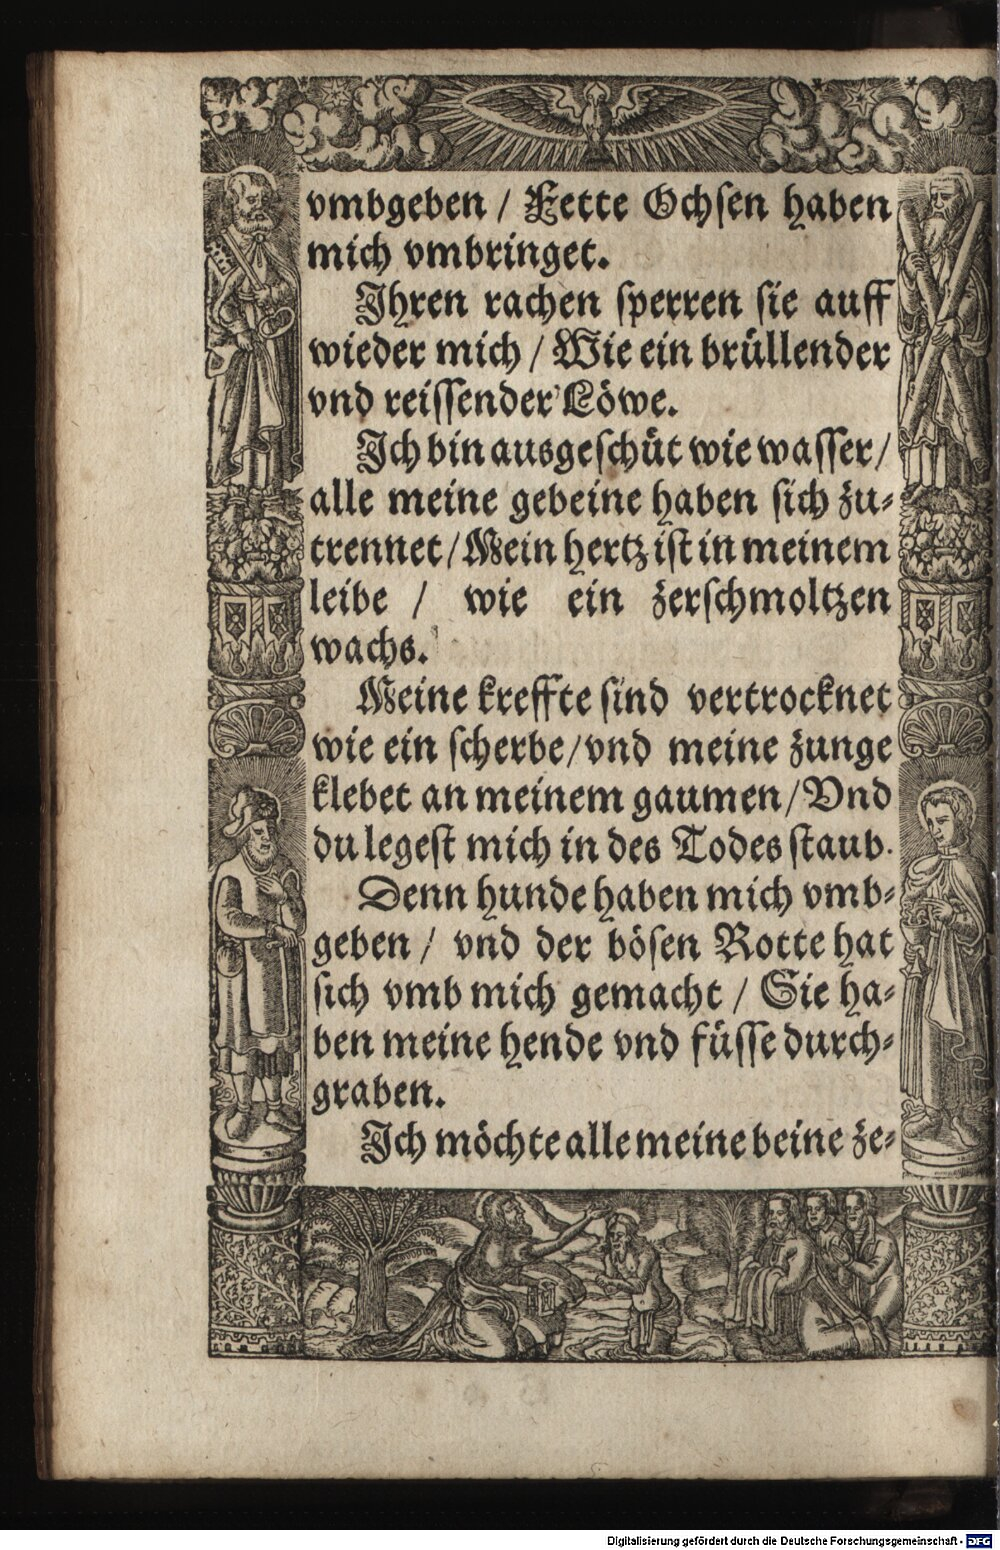 vmbgeben / Fette Ochsen haben
mich vmbringet.
Ihren rachen sperren sie auff
wieder mich / Wie ein brüllender
vnd reissender Löwe.
Ich bin ausgeschüt wie wasser /
alle meine gebeine haben sich zu-
trennet / Mein hertz ist in meinem
leibe / wie ein zerschmoltzen
wachs.
Meine kreffte sind vertrocknet
wie ein scherbe / vnd meine zunge
klebet an meinem gaumen / Vnd
du legest mich in des Todes staub.
Denn hunde haben mich vmb-
geben / vnd der bösen Rotte hat
sich vmb mich gemacht / Sie ha-
ben meine hende vnd füsse durch-
graben.
Ich möchte alle meine beine ze-
Digitalisierung gefördert durch die Deutsche Forschungsgemeinschaft - DFG